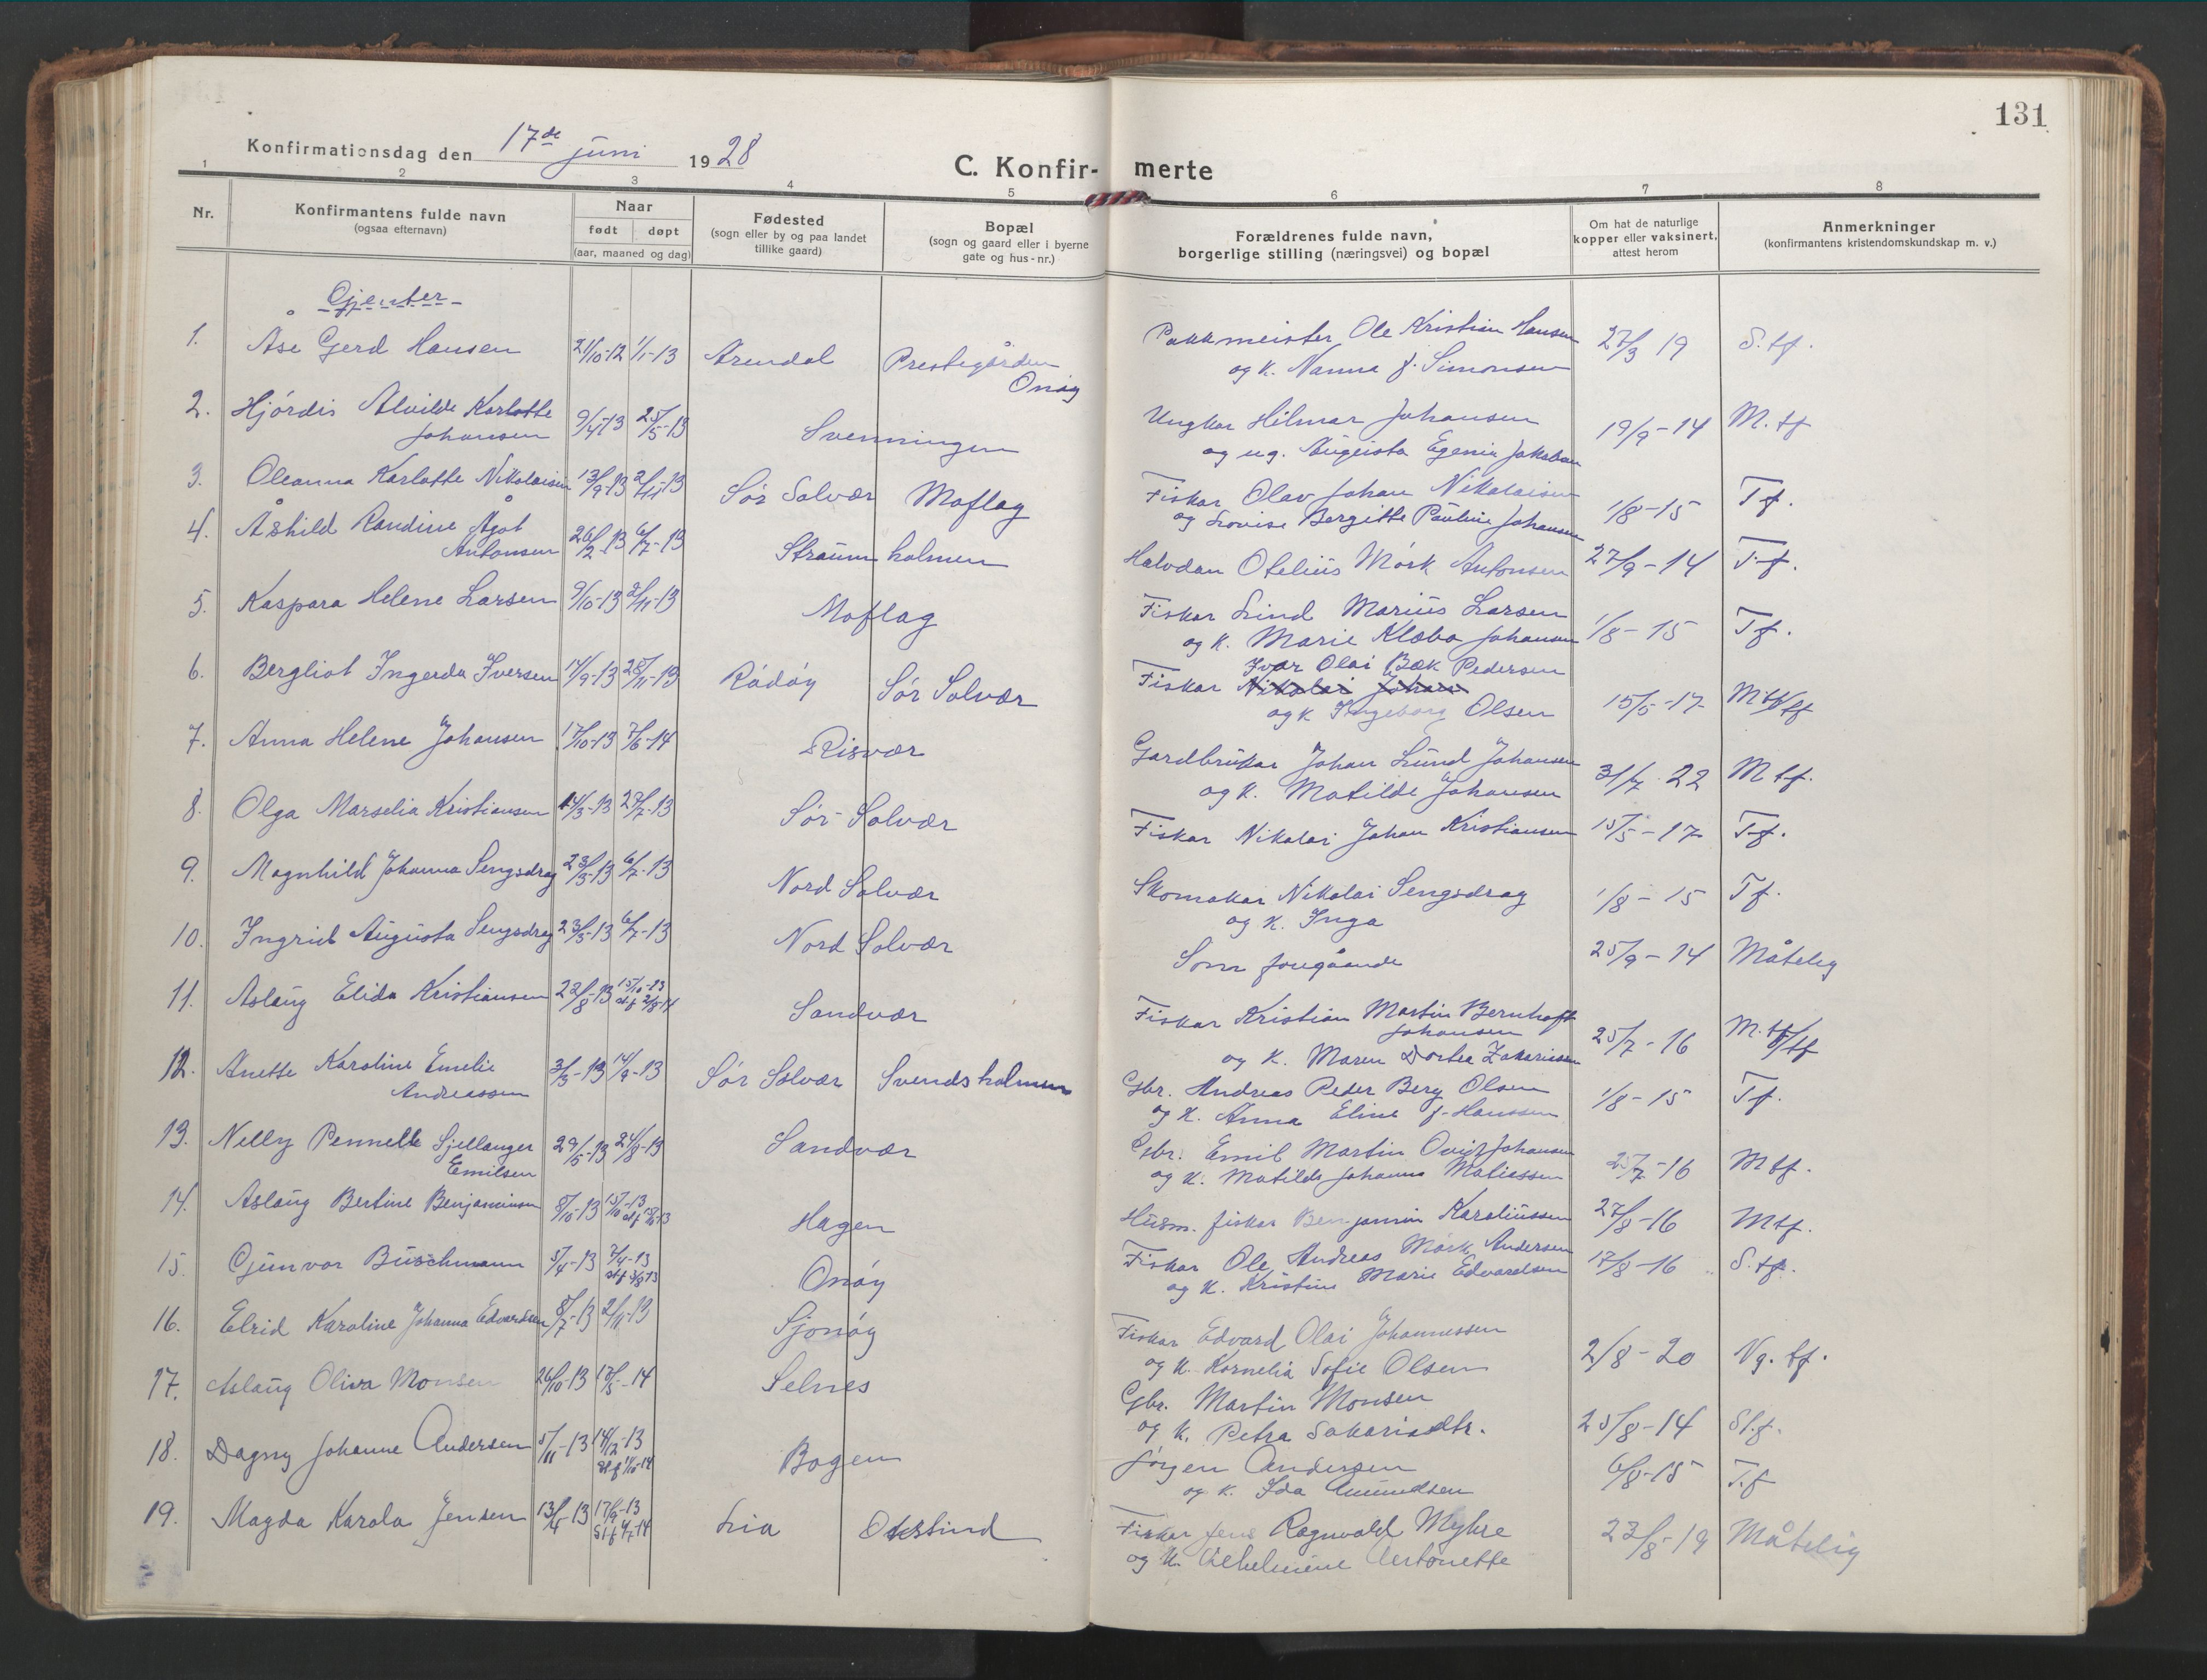 131
Konfirmationsdag den 17de juni 1928
C. Konfir- merte
1 2 3 4 5 6 7 8
Nr.
Konfirmantens fulde navn
(ogsaa efternavn)
Naar
født døpt
(aar, maaned og dag)
Fødested
(sogn eller by og paa landet
tillike gaard)
Bopæl
(sogn og gaard eller i byerne
gate og hus-nr.)
Forældrenes fulde navn,
borgerlige stilling (næringsvei) og bopæl
Om hat de naturlige
kopper eller vaksinert,
attest herom
Anmerkninger
(konfirmantens kristendomskundskap m. v.)
Gjenter
1. Åse Gerd Hansen 21/10-12 1/1-13 Arendal Prestegården
Onøy
Pakkmeister Ole Kristian Hansen
og k. Nanna f. Simonsen
27/3 19 S.tf.
2. Hjørdis Alvilde Karlotte
Johansen 9/4-13 25/5-13 Svenningen
Ungkar Hilmar Johansen
og ug. Augusta Egenie Jakobsen
19/9-14 M.tf
3. Oleanna Karlotte Nikolaisen 13/9-13 2/11-13 Sør Solvær Moflag
Fiskar Olav Johan Nikolaisen
og Lovise Bergitte Pauline Johansen
1/8-15 Tf.
4. Åshild Randine Ågot
Antonsen 26/2-13 6/7-13 Straumholmen
Halvdan Otelius Mørk Antonsen
27/9-14 T.f.
5. Kaspara Helene Larsen 9/10-13 2/11-13 Moflag
Fiskar Lind Marius Larsen
og k. Marie Klæbo Johansen
1/8-15 Tf.
6. Bergliot Ingerda Iversen 14/9-13 28/11-13 Rødøy Sør Solvær
Ivar Olai Bæk Pedersen
Fiskar Nikolai Johan
og k Ingeborg Olsen
15/5-17 Mtf/tf
7. Anna Helene Johansen 17/10-13 7/6-14 Risvær
Gardbrukar Johan Lund Johansen
og k. Matilde Johansen
31/7-22 M tf.
8. Olga Marselia Kristiansen 14/3-13 29/7-13 Sør-Solvær
Fiskar Nikolai Johan Kristiansen
15/5-17 T.f.
9. Magnhild Johanna Sengsdrag 23/3-13 6/7-13 Nord Solvær
Skomakar Nikolai Sengsdrag
og k. Inga
1/8-15 Tf.
10. Ingrid Augusta Sengsdrag 23/3-13 6/7-13 Nord Solvær
Som foregåande
25/9-14 Måteleg
11. Aslaug Elida Kristiansen 22/8-13 15/10-13
st f 2/8-14 Sandvær
Fiskar Kristian Martin Bernhoft
Johansen
og k. Maren Dortea Zakariasen
25/7-16 M.tf/tf
12. Anette Karoline Emelie
Andreassen 3/3-13 14/9-13 Sør Solvær Svendsholmen
Gbr. Andreas Peder Berg Olsen
og k. Anna Eline f. Hanssen
1/8-15 Tf.
13. Nelly Pennelle Sjellanger
Emilsen 29/5-13 24/8-13 Sandvær
Gbr. Emil Martin Ovidr Johansen
og k. Matilde Johanna Matiassen
25/7-16 Mtf.
14. Aslaug Bertine Benjaminsen 8/10-13 15/10-13 Hagen
Husm. fiskar Benjamin Karoliussen
27/8-16 Mtf.
15. Gunvor Buschmann 5/4-13 7/4-13
st f 3/8 13 Onøy
Fiskar Ole Andreas Mørk Andersen
og k. Kristine Marie Edvardsen
17/8-16 S.tf.
16. Elrid Karoline Johanna Edvardsen 8/7-13 2/11-13 Sjonøy
Fiskar Edvard Olai Johannessen
og k. Kornelia Sofie Olsen
2/8-20 Ng. tf.
17. Aslaug Oliva Monsen 26/10-13 17/5-14 Selnes
Gbr. Martin Monsen
og k. Petra Sakariasdtr.
25/8-14 St.f.
18. Dagny Johanne Andersen 5/11-13 14/12-13
st f 1/10-14 Bogen
Jørgen Andersen
og k. Ida Amundsen
6/8-15 T.f
19. Magda Karola Jensen 13/4-13 17/9-13
St f 4/7-14 Lia Okstind
Fiskar Jens Ragnvald Myhre
og k. Vilhelmine Antonette
23/8-19 Måtelig